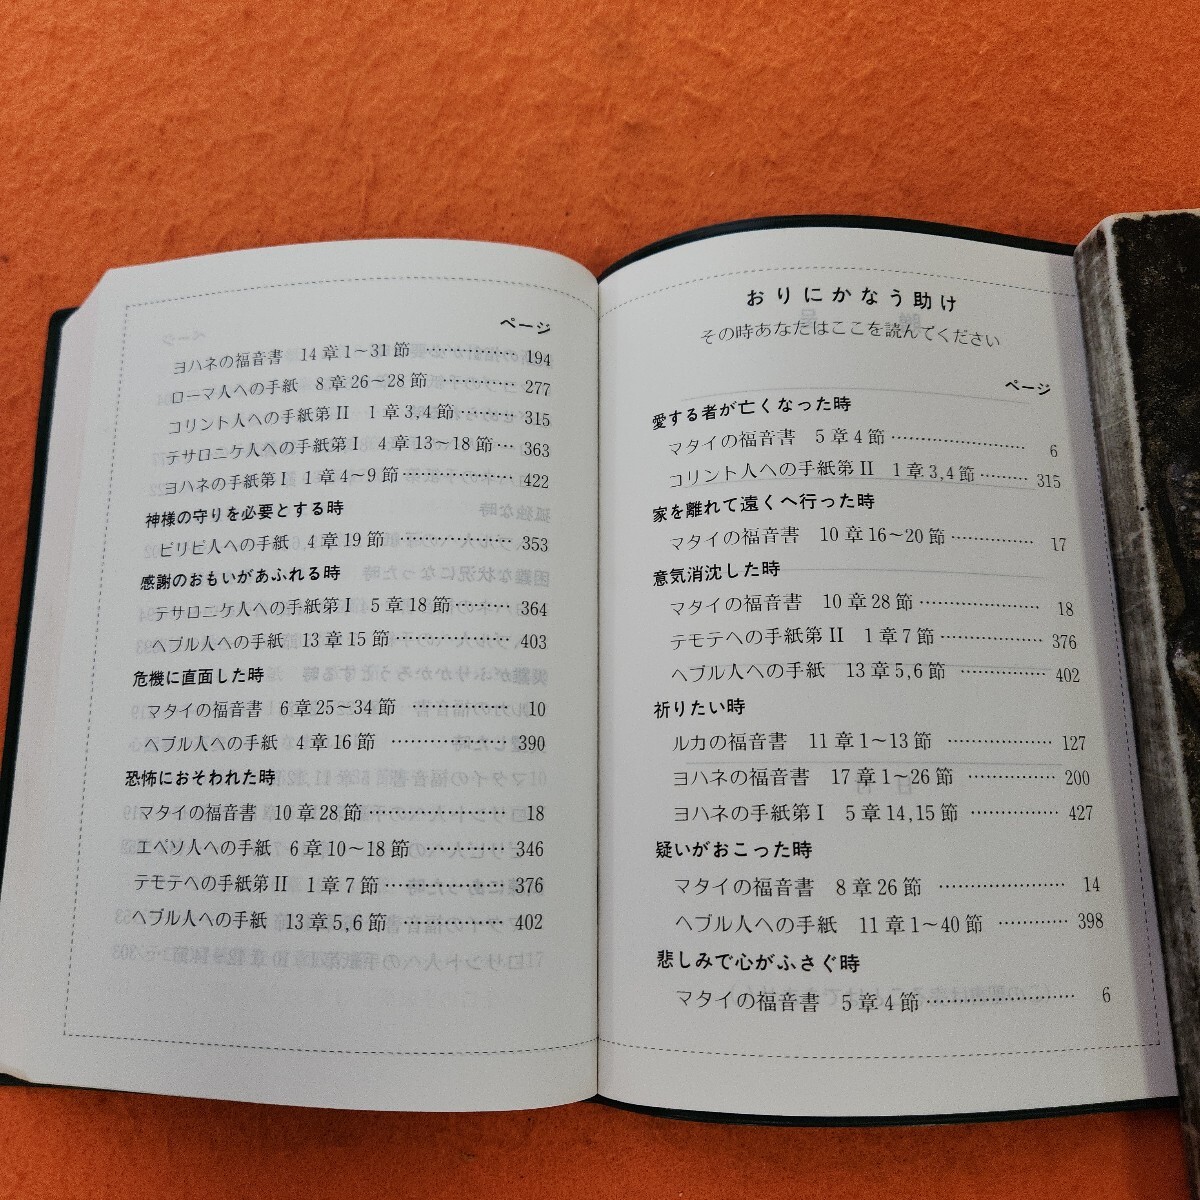 ページ
ヨハネの福音書 14章1〜31節 …………… 194
ローマ人への手紙 8章26〜28節 ………… 277
コリント人への手紙第II 1章3,4節 ……… 315
テサロニケ人への手紙第I 4章13〜18節 … 363
ヨハネの手紙第I 1章4〜9節 …………… 422
神様の守りを必要とする時
ピリピ人への手紙 4章19節 …………… 353
感謝のおもいがあふれる時
テサロニケ人への手紙第I 5章18節 ……… 364
ヘブル人への手紙 13章15節 …………… 403
危機に直面した時
マタイの福音書 6章25〜34節 …………… 10
ヘブル人への手紙 4章16節 …………… 390
恐怖におそわれた時
マタイの福音書 10章28節 ……………… 18
エペソ人への手紙 6章10〜18節 ………… 346
テモテへの手紙第II 1章7節 …………… 376
ヘブル人への手紙 13章5,6節 …………… 402
おりにかなう助け
その時あなたはここを読んでください
ページ
愛する者が亡くなった時
マタイの福音書 5章4節 ……………… 6
コリント人への手紙第II 1章3,4節 ……… 315
家を離れて遠くへ行った時
マタイの福音書 10章16〜20節 ………… 17
意気消沈した時
マタイの福音書 10章28節 ……………… 18
テモテへの手紙第II 1章7節 …………… 376
ヘブル人への手紙 13章5,6節 …………… 402
祈りたい時
ルカの福音書 11章1〜13節 …………… 127
ヨハネの福音書 17章1〜26節 …………… 200
ヨハネの手紙第I 5章14,15節 ………… 427
疑いがおこった時
マタイの福音書 8章26節 ……………… 14
ヘブル人への手紙 11章1〜40節 ………… 398
悲しみで心がふさぐ時
マタイの福音書 5章4節 ……………… 6